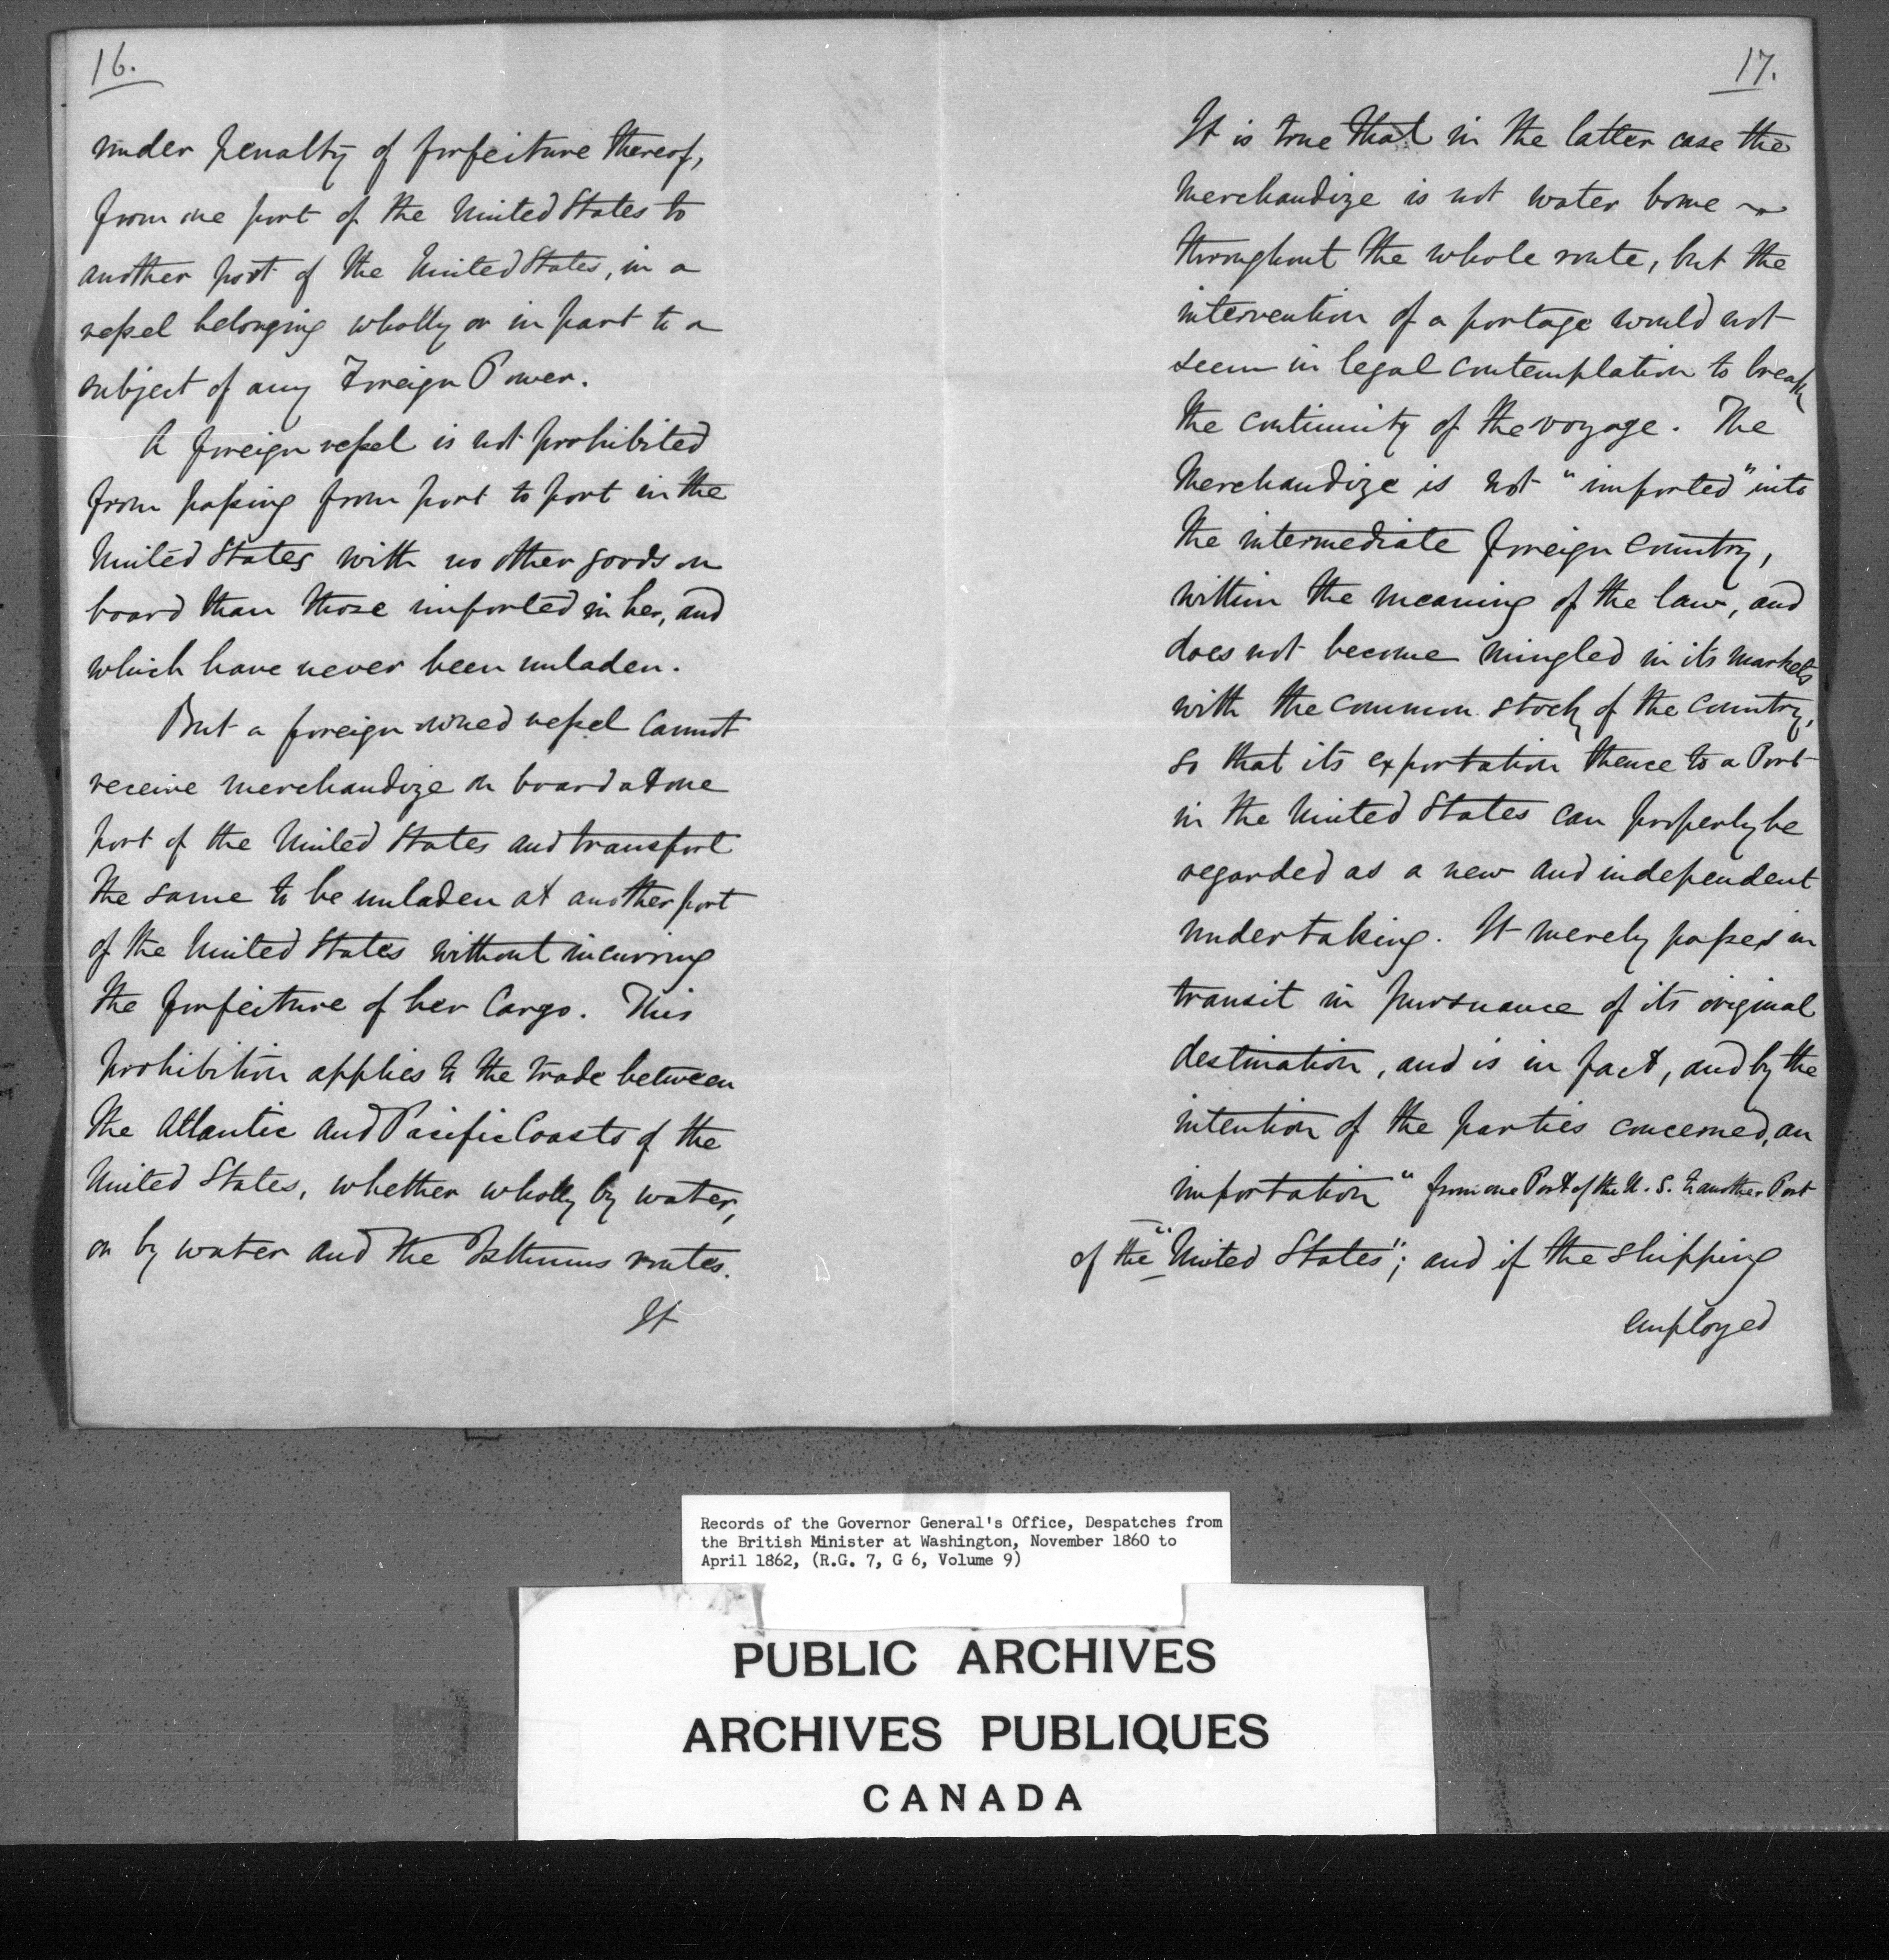 16.
under penalty of forfeiture thereof,
from one port of the United States to
another port of the United States, in a
vessel belonging wholly or in part to a
subject of any Foreign Power.
A foreign vessel is not prohibited
from passing from port to port in the
United States with no other goods on
board than those imported in her, and
which have never been unladen.
But a foreign owned vessel cannot
receive merchandize on board at one
port of the United States and transport
the same to be unladen at another port
of the United States without incurring
the forfeiture of her Cargo. This
prohibition applies to the trade between
the Atlantic and Pacific Coasts of the
United States, whether wholly by water,
or by water and the Isthmus routes.
It
17.
It is true that in the latter case the
Merchandize is not water borne
throughout the whole route, but the
intervention of a portage would not
seem in legal contemplation to break
the continuity of the voyage. The
Merchandize is not "imported" into
the intermediate foreign country,
within the meaning of the law, and
does not become mingled in its markets
with the common stock of the country,
so that its exportation thence to a Port
in the United States can properly be
regarded as a new and independent
undertaking. It merely passes in
transit in pursuance of its original
destination, and is in fact, and by the
intention of the parties concerned, an
importation "from one Port of the U. S. to another Port
of the "United States"; and if the shipping
employed
Records of the Governor General's Office, Despatches from
the British Minister at Washington, November 1860 to
April 1862, (R.G. 7, G 6, Volume 9)
PUBLIC ARCHIVES
ARCHIVES PUBLIQUES
CANADA